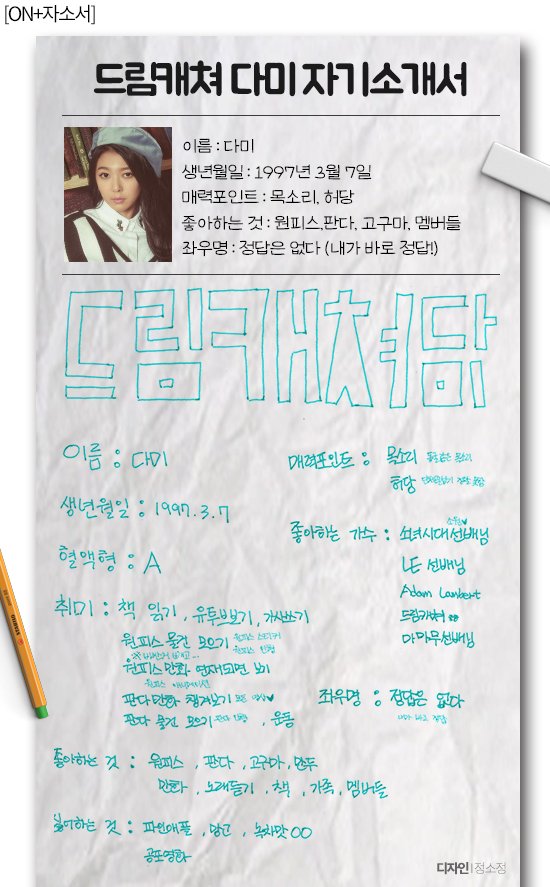 [ON+자소서]
드림캐쳐 다미 자기소개서
이름 : 다미
생년월일 : 1997년 3월 7일
매력포인트 : 목소리, 허당
좋아하는 것 : 원피스,판다, 고구마, 멤버들
좌우명 : 정답은 없다 (내가 바로 정답!)
드림캐쳐 담
이름 : 다미
생년월일 : 1997. 3. 7
혈액형 : A
취미 : 책 읽기, 유투브보기, 가사쓰기
원피스 물건 모으기 원피스 스티커
원피스 인형
원피스 만화 연재되면 보기
원피스
판다만화 챙겨보기
판다 물건 모으기 판다 인형, 운동
매력포인트 : 목소리
허당
좋아하는 가수 : 소녀시대선배님
LE 선배님
Adam Lambert
드림캐쳐
마마무선배님
좌우명 : 정답은 없다
내가 바로 정답
좋아하는 것 : 원피스, 판다, 고구마, 만두
만화, 노래듣기, 책, 가족, 멤버들
싫어하는 것 : 파인애플, 당근, 녹차맛OO
공포영화
디자인|정소정